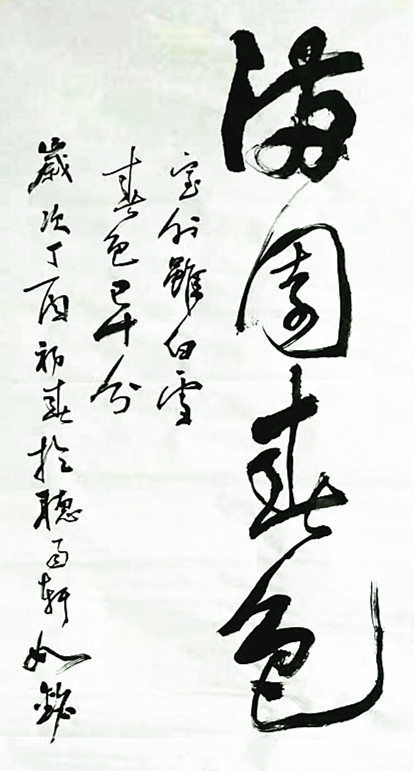 满园春色
室外雖白雪
春色已十分
歲次丁酉初春於聽雨軒如